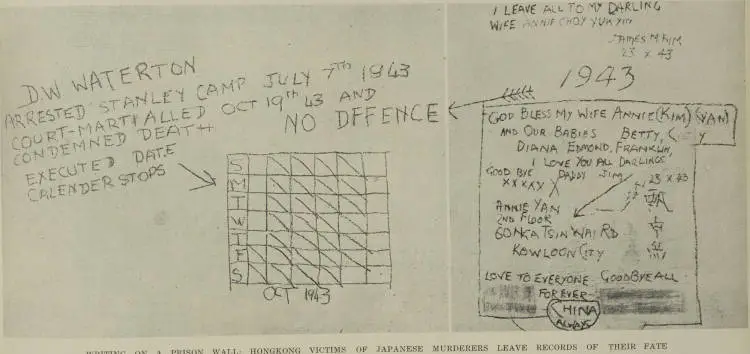 D.W WATERTON
ARRESTED STANLEY CAMP JULY 7TH 1943
COURT-MARTIALLED OCT 19th 43 AND
CONDEMNED DEATH
NO DFFENCE
EXECUTED DATE
CALENDER STOPS
S
M
T
W
T
F
S
OCT 1943
I LEAVE ALL TO MY DARLING
WIFE ANNIE CHOY YUK YIN
JAMES M. KIM.
23 X 43
1943
GOD BLESS MY WIFE ANNIE (KIM) (YAN)
AND OUR BABIES BETTY,
DIANA EDMOND, FRANKLIN,
I LOVE YOU ALL DARLINGS
GOOD BYE DADDY JIM
XXXXX 23 X 43
ANNIE YAN
2ND FLOOR
60 NGA TSIN WAI RD
KOWLOON CITY
LOVE TO EVERYONE GOODBYE ALL
FOREVER
CHINA
ALWAYS
WRITING ON A PRISON WALL: HONGKONG VICTIMS OF JAPANESE MURDERERS LEAVE RECORDS OF THEIR FATE